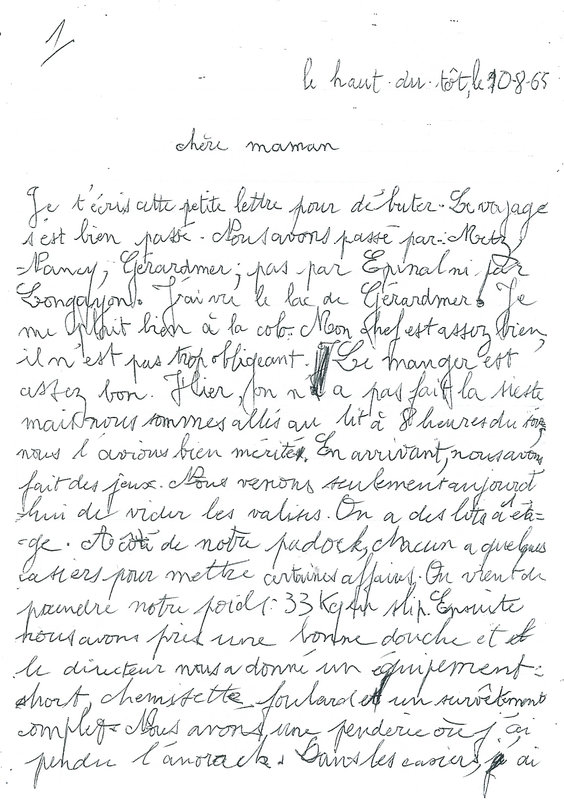 1
le haut-du-tôt, le 10-8-65
chère maman
Je t'écris cette petite lettre pour débuter. Le voyage
s'est bien passé. Nous avons passé par: Metz,
Nancy, Gérardmer; pas par Epinal ni par
Longuyon. J'ai vu le lac de Gérardmer. Je
me plait bien à la colo. Mon chef est assez bien,
il n'est pas trop obligeant. Le manger est
assez bon. Hier, on n'a pas fait la sieste
mais nous sommes allés au lit à 8 heures du soir,
nous l'avions bien mérité. En arrivant, nous avons
fait des jeux. Nous venons seulement aujourd'
hui de vider les valises. On a des lits à éta-
-ge. A côté de notre padock, chacun a quelques
casiers pour mettre certaines affaires. On vient de
prendre notre poids: 33 Kg en slip. Ensuite
nous avons pris une bonne douche et
le directeur nous a donné un équipement:
short, chemisette, foulard et un survêtement
complet. Nous avons une penderie où j'ai
pendu l'anorack. Dans les casiers, j'ai